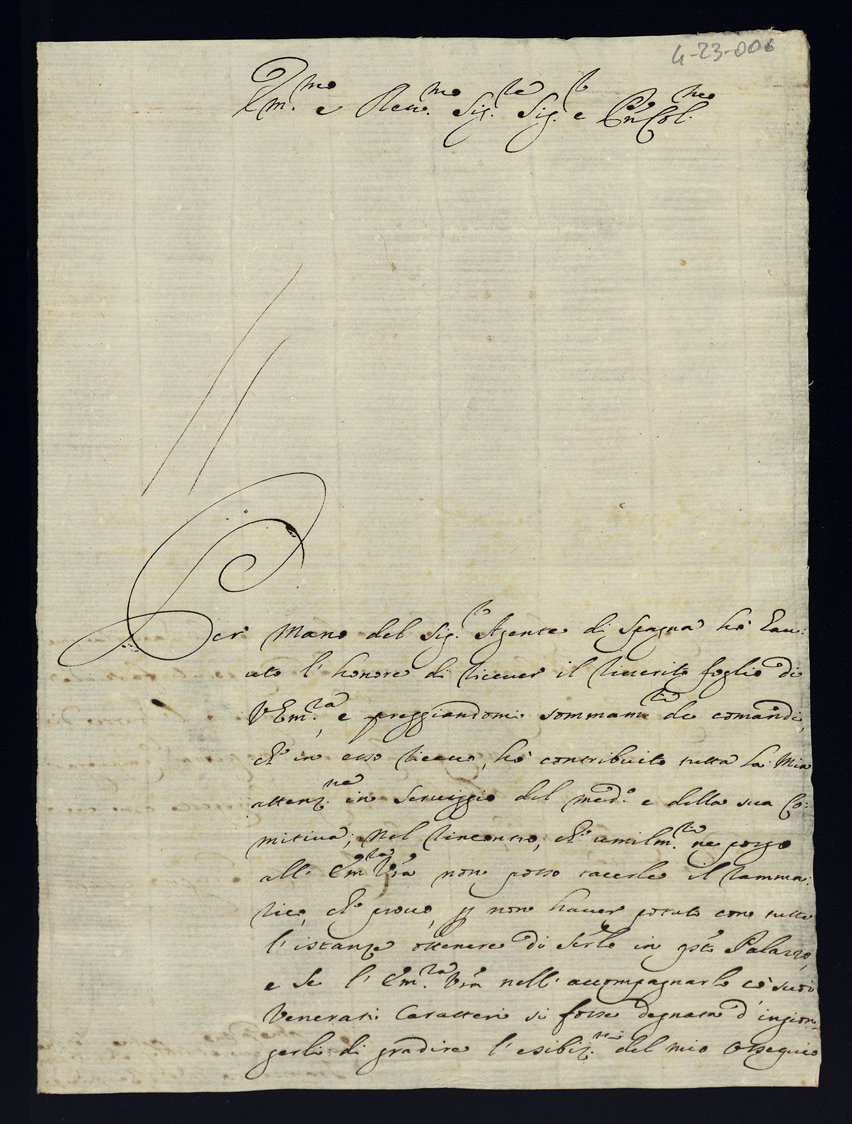 4-23-006
Em.mo e Reu.mo Sig.re Sig.r e Pn Col.mo
Per mano del Sig.r Agente di Spagna hò hau:
uto l'honore di riceuer il riuerito foglio di
VEm.za, e preggiandomi sommam.te de comandi,
ch'in esso riceuo, hò contribuito tutta la mia
attenz.ne in seruiggio del med.o e della sua Co:
mitiua; Nel rincontro, ch'umilm.te ne porgo
all'Em.za Vra non posso tacerle il ramma:
rico, che prouo, p non hauer potuto con tutte
l'istanze ottenere di seruirlo in qsto Palazzo,
e se l'Em.za Vra nell'accompagnarlo cò suoi
Venerati Caratteri si fosse degnata d'ingion:
gerli di gradire l'esibiz.ne del mio ossequio